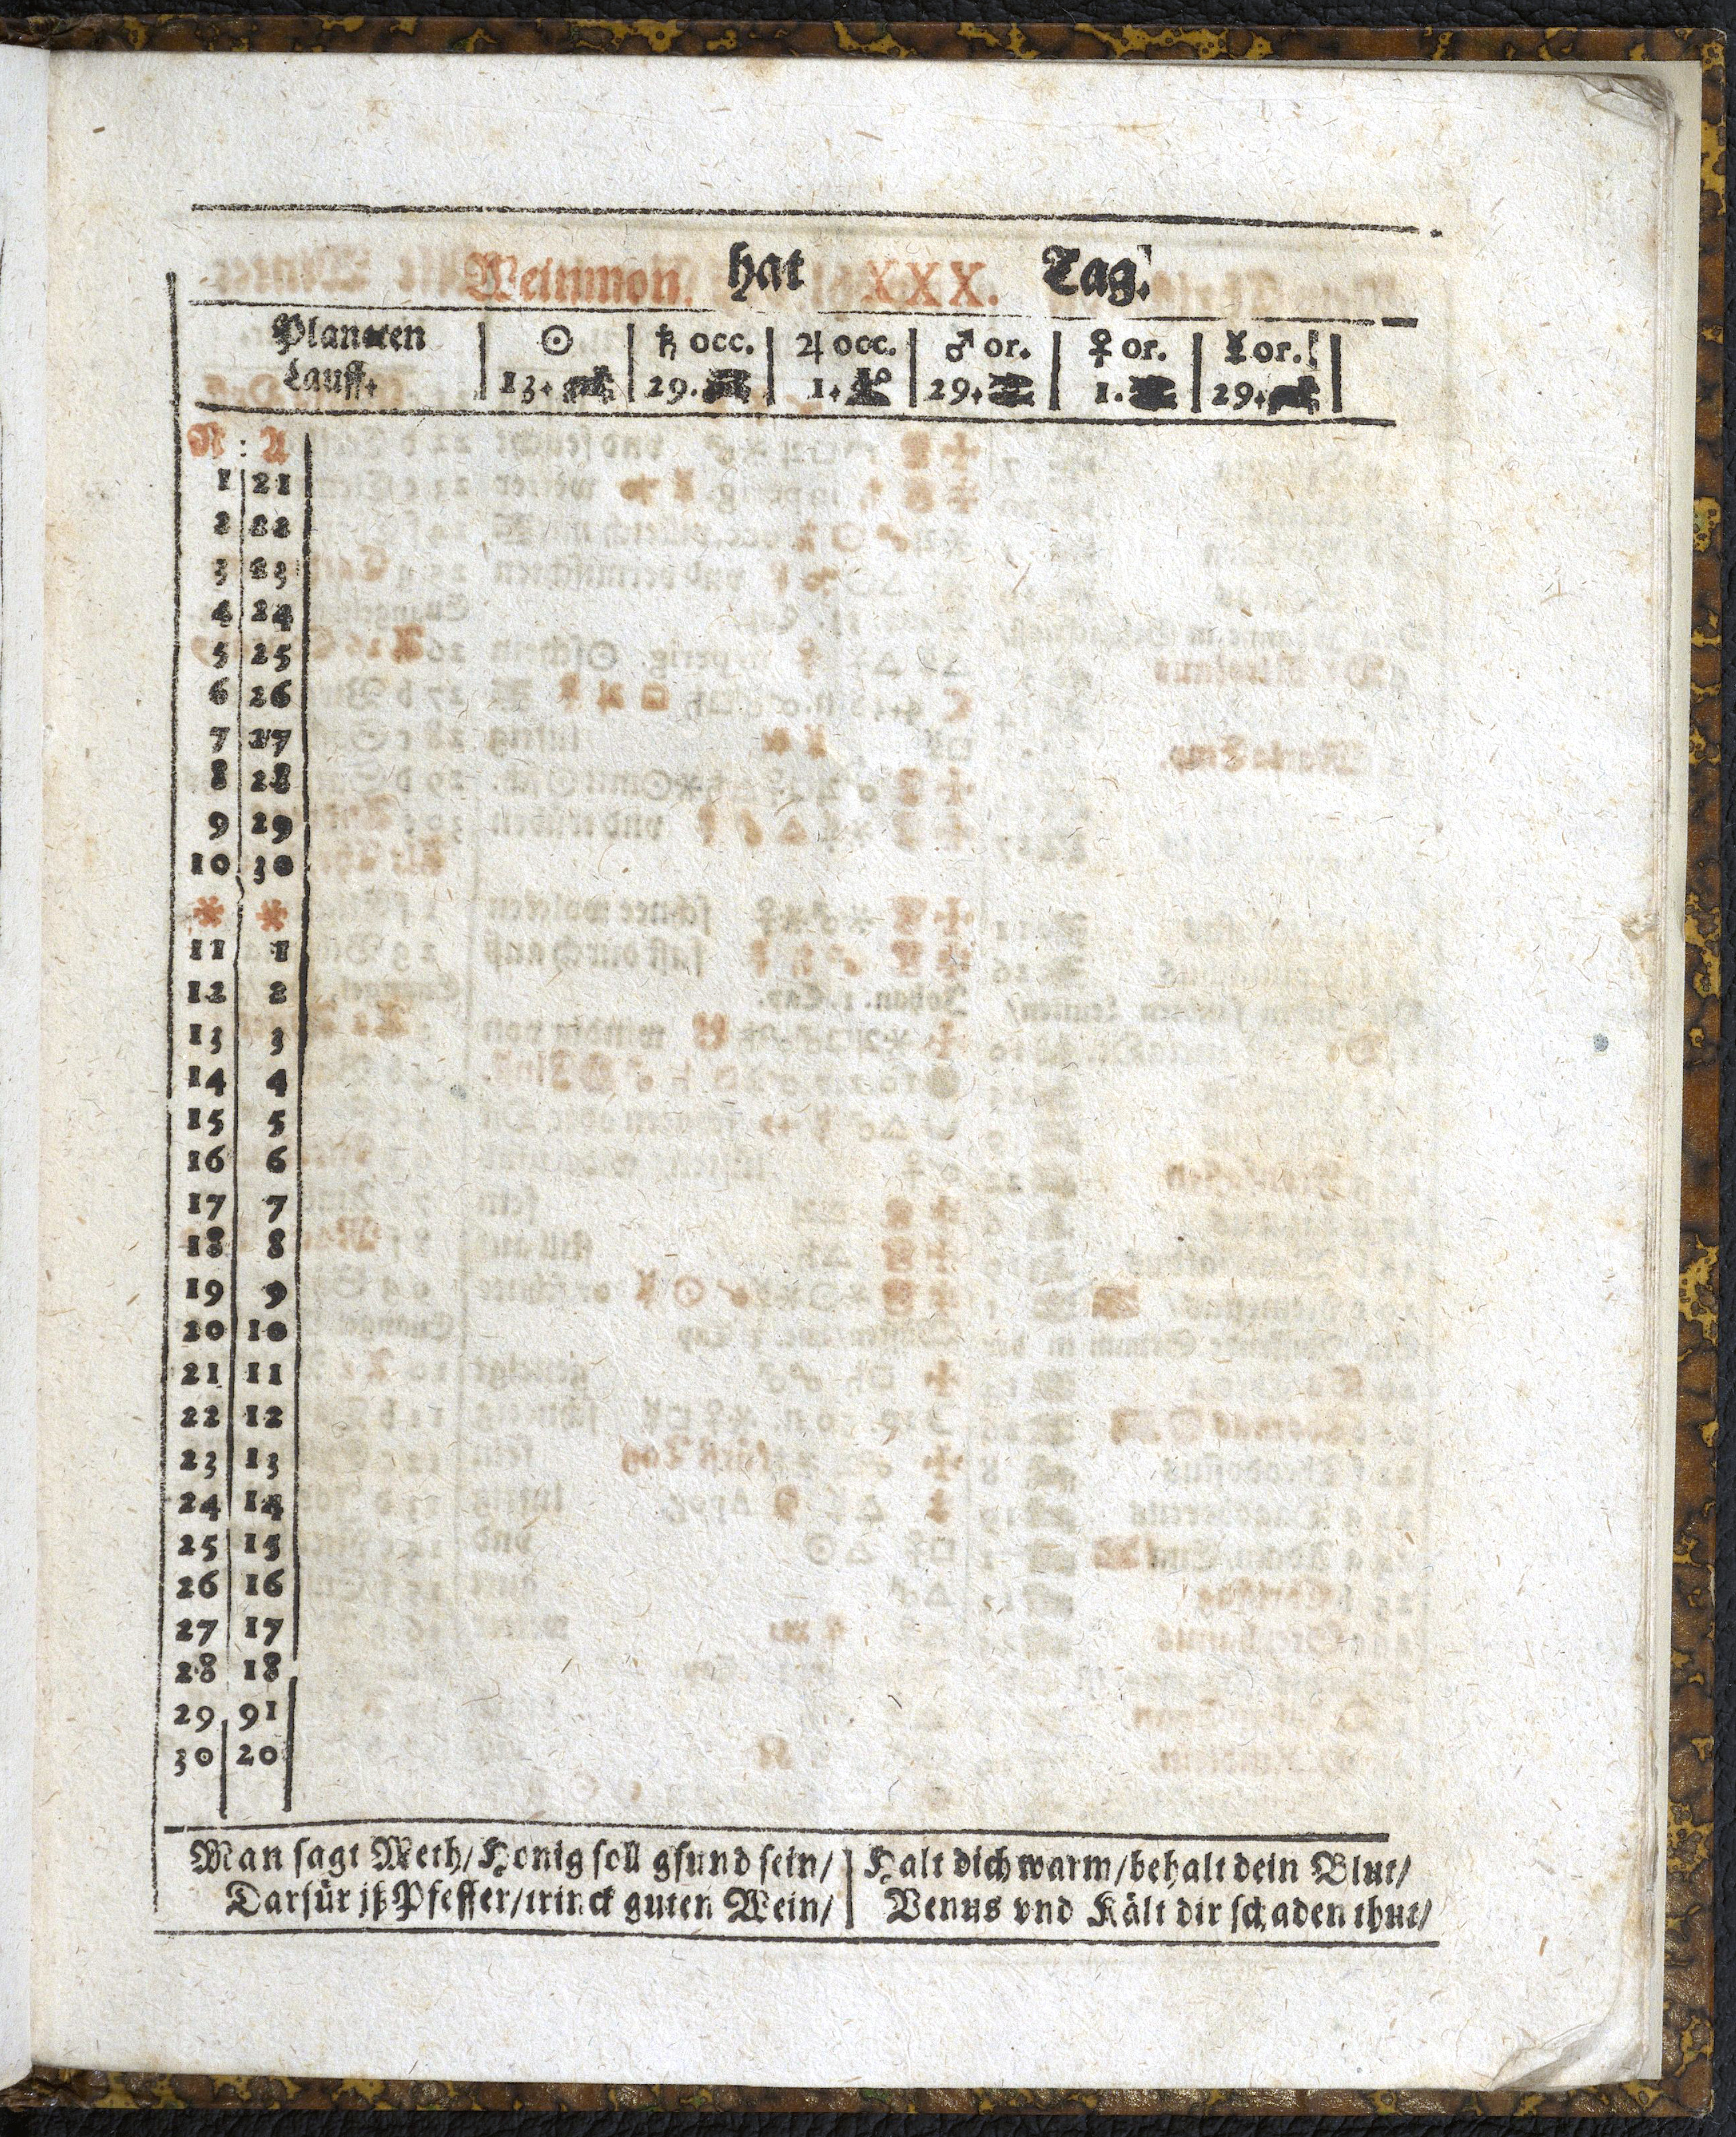 Weinmon. hat XXX. Tag.
Planeten ☉ ♄ occ. ♃ occ. ♂ or. ♀ or. ☿ or.
Lauff. 13. 29. 1. 29. 1. 29.
N : A
1 21
2 22
3 23
4 24
5 25
6 26
7 27
8 28
9 29
10 30
* *
11 1
12 2
13 3
14 4
15 5
16 6
17 7
18 8
19 9
20 10
21 11
22 12
23 13
24 14
25 15
26 16
27 17
28 18
29 91
30 20
Man sagt Meth/Honig soll gsund sein/
Darfür jß Pfeffer/trinck guten Wein/
Halt dich warm/behalt dein Blut/
Venus vnd Kält dir schaden thut/